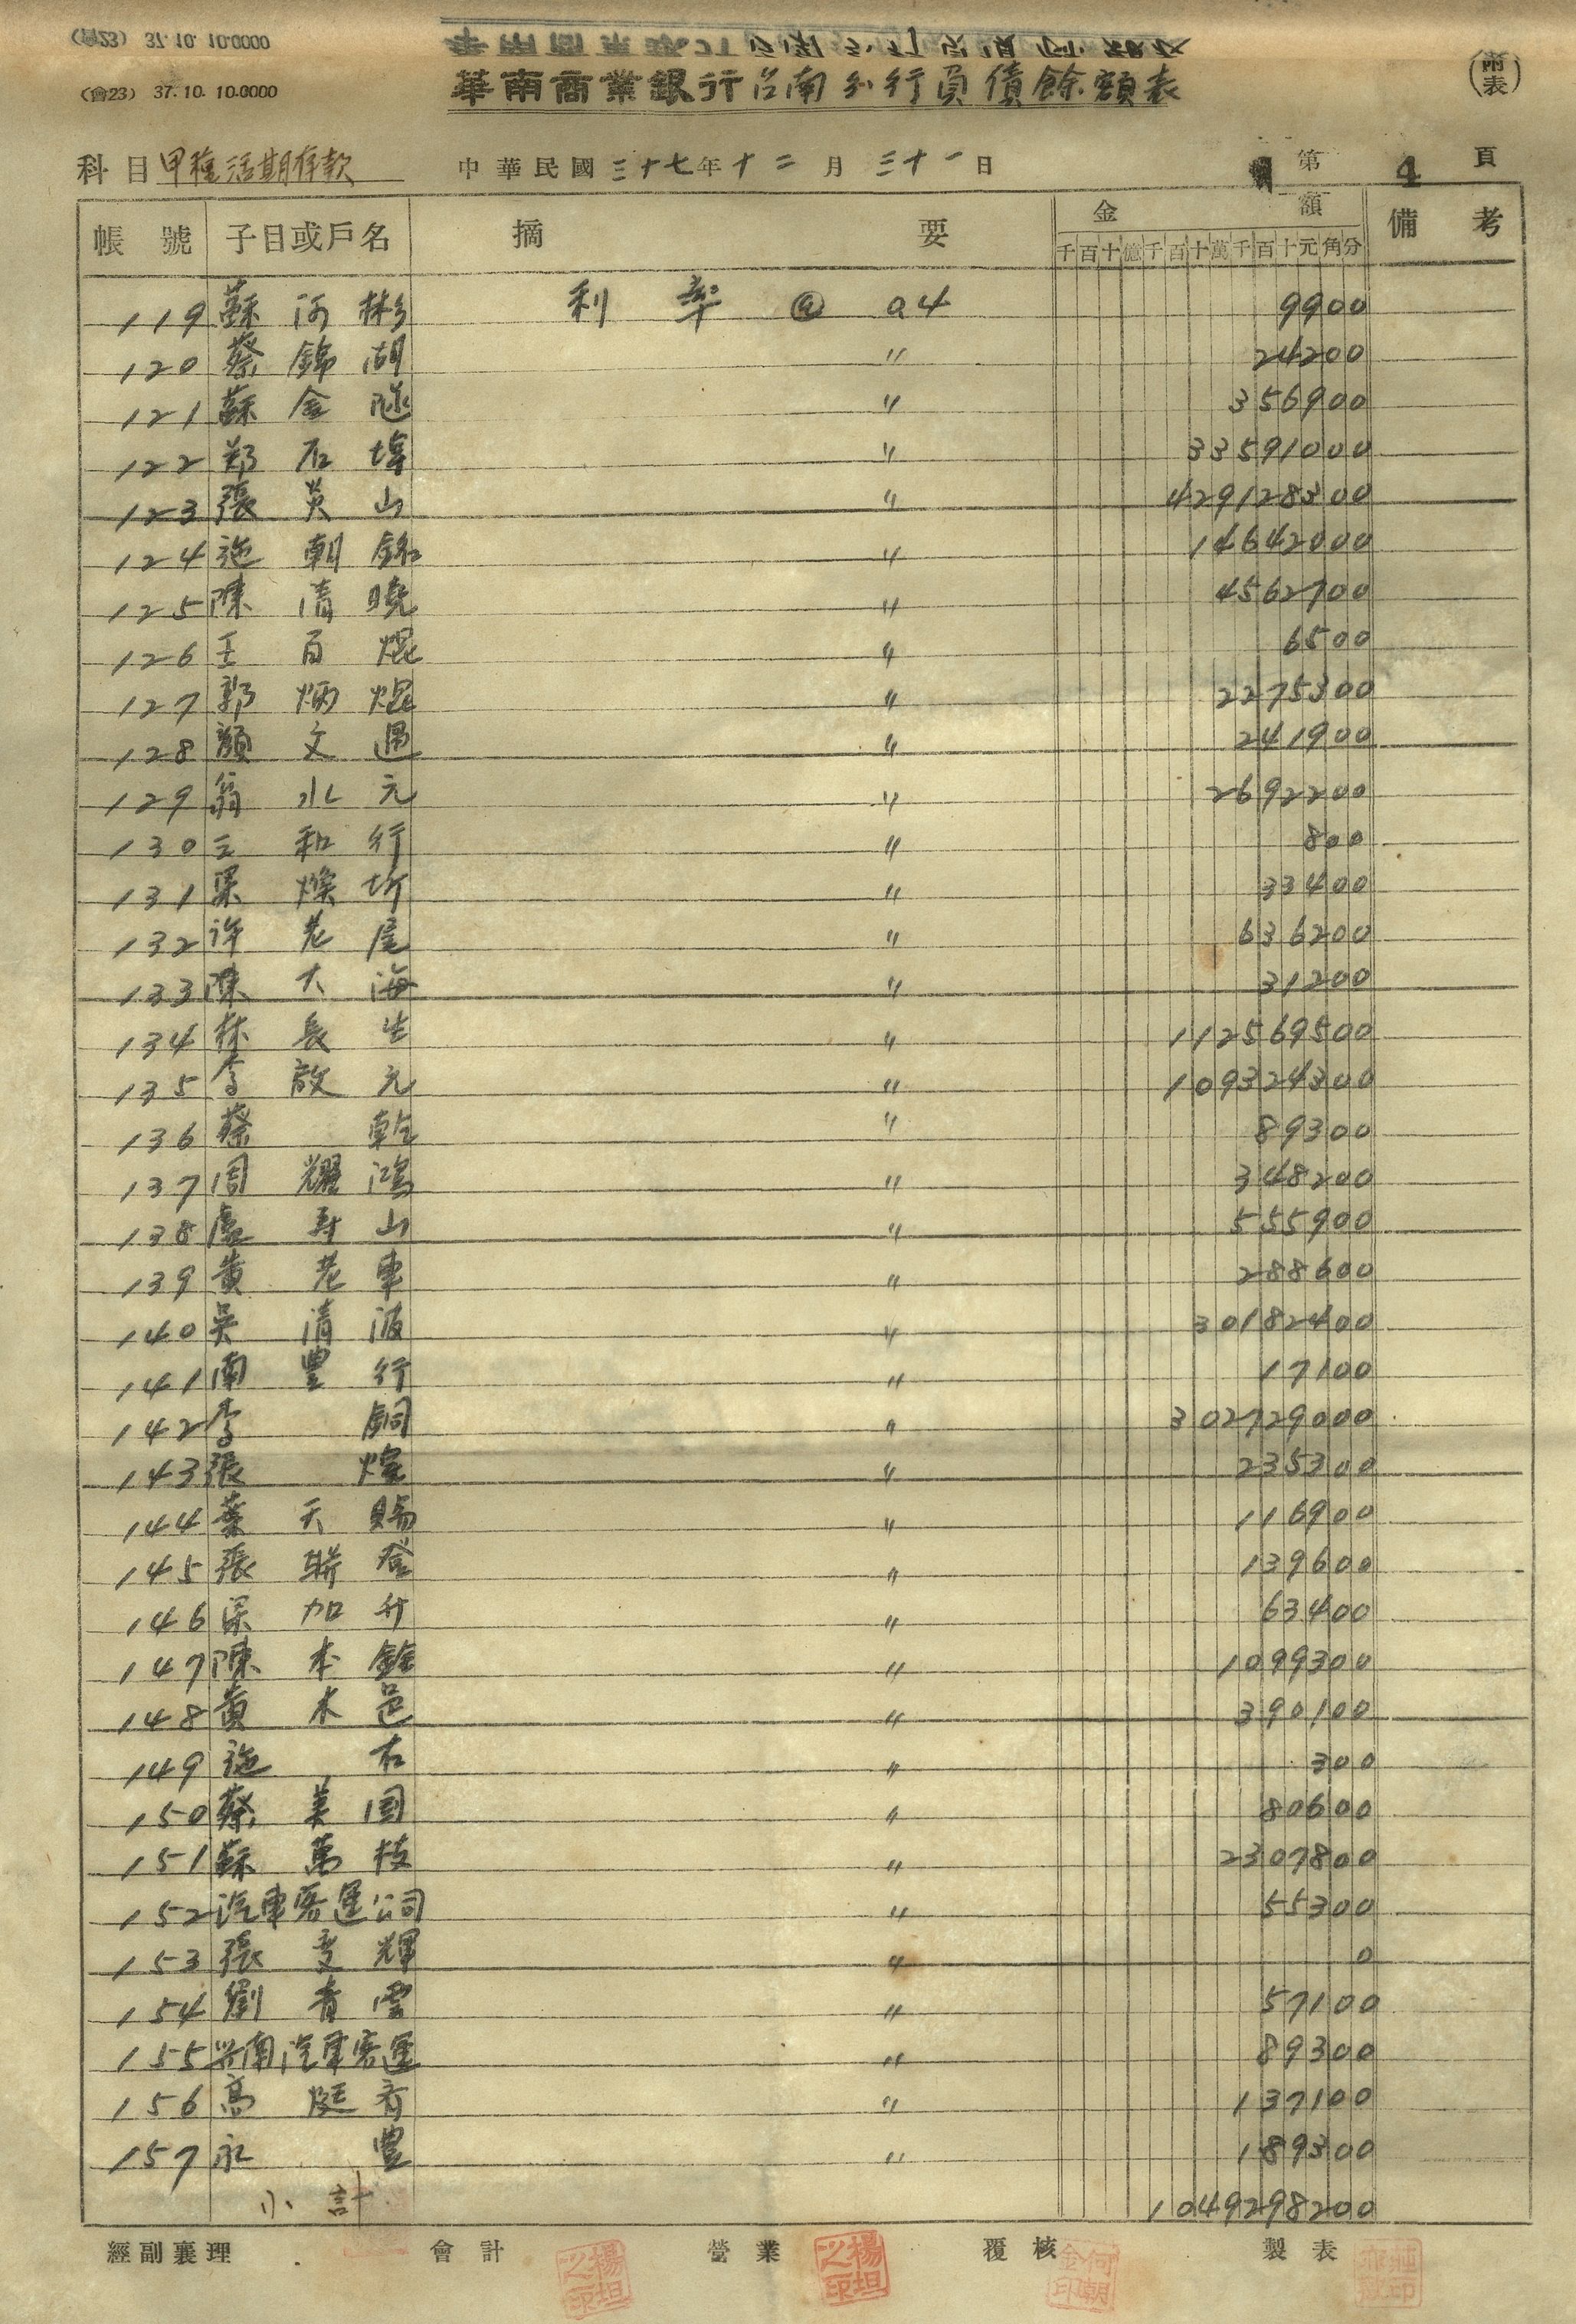 (會23) 37.10.10.0000
華南商業銀行台南分行負債餘額表
(附表)
科目 甲種活期存款 中華民國三十七年十二月三十一日 第4頁
帳號 子目或戶名 摘要 金額 備考
千百十億千百十萬千百十元角分
119 蘇河彬 利率 @ 0.4 9900
120 蔡錦湖 〃 24200
121 蘇金隧 〃 356900
122 郑石埤 〃 33591000
123 張英山 〃 429128300
124 施朝銘 〃 14642000
125 陳清曉 〃 4562700
126 王百焜 〃 6500
127 郭炳焜 〃 2275300
128 顏文遇 〃 241900
129 翁水元 〃 2692200
130 三和行 〃 800
131 梁煥圻 〃 33400
132 许老尾 〃 636200
133 陳大海 〃 31200
134 林長生 〃 112569500
135 李啟元 〃 109324300
136 蔡乾 〃 89300
137 周耀鴻 〃 348200
138 盧寿山 〃 555900
139 黄老車 〃 288600
140 吳清波 〃 30182400
141 南豊行 〃 17100
142 李銅 〃 302729000
143 張煌 〃 235300
144 葉天賜 〃 116900
145 張聯登 〃 139600
146 梁加升 〃 63400
147 陳本銓 〃 1099300
148 黄木邑 〃 390100
149 施右 〃 300
150 蔡美国 〃 80600
151 蘇萬枝 〃 2307800
152 汽車客運公司 〃 55300
153 張变輝 〃 0
154 劉青雲 〃 57100
155 兴南汽車客運 〃 89300
156 高挺斉 〃 137100
157 永豊 〃 189300
小計 1049298200
經副襄理 會計 營業 覆核 製表
楊坦之印 楊坦之印 何朝金印